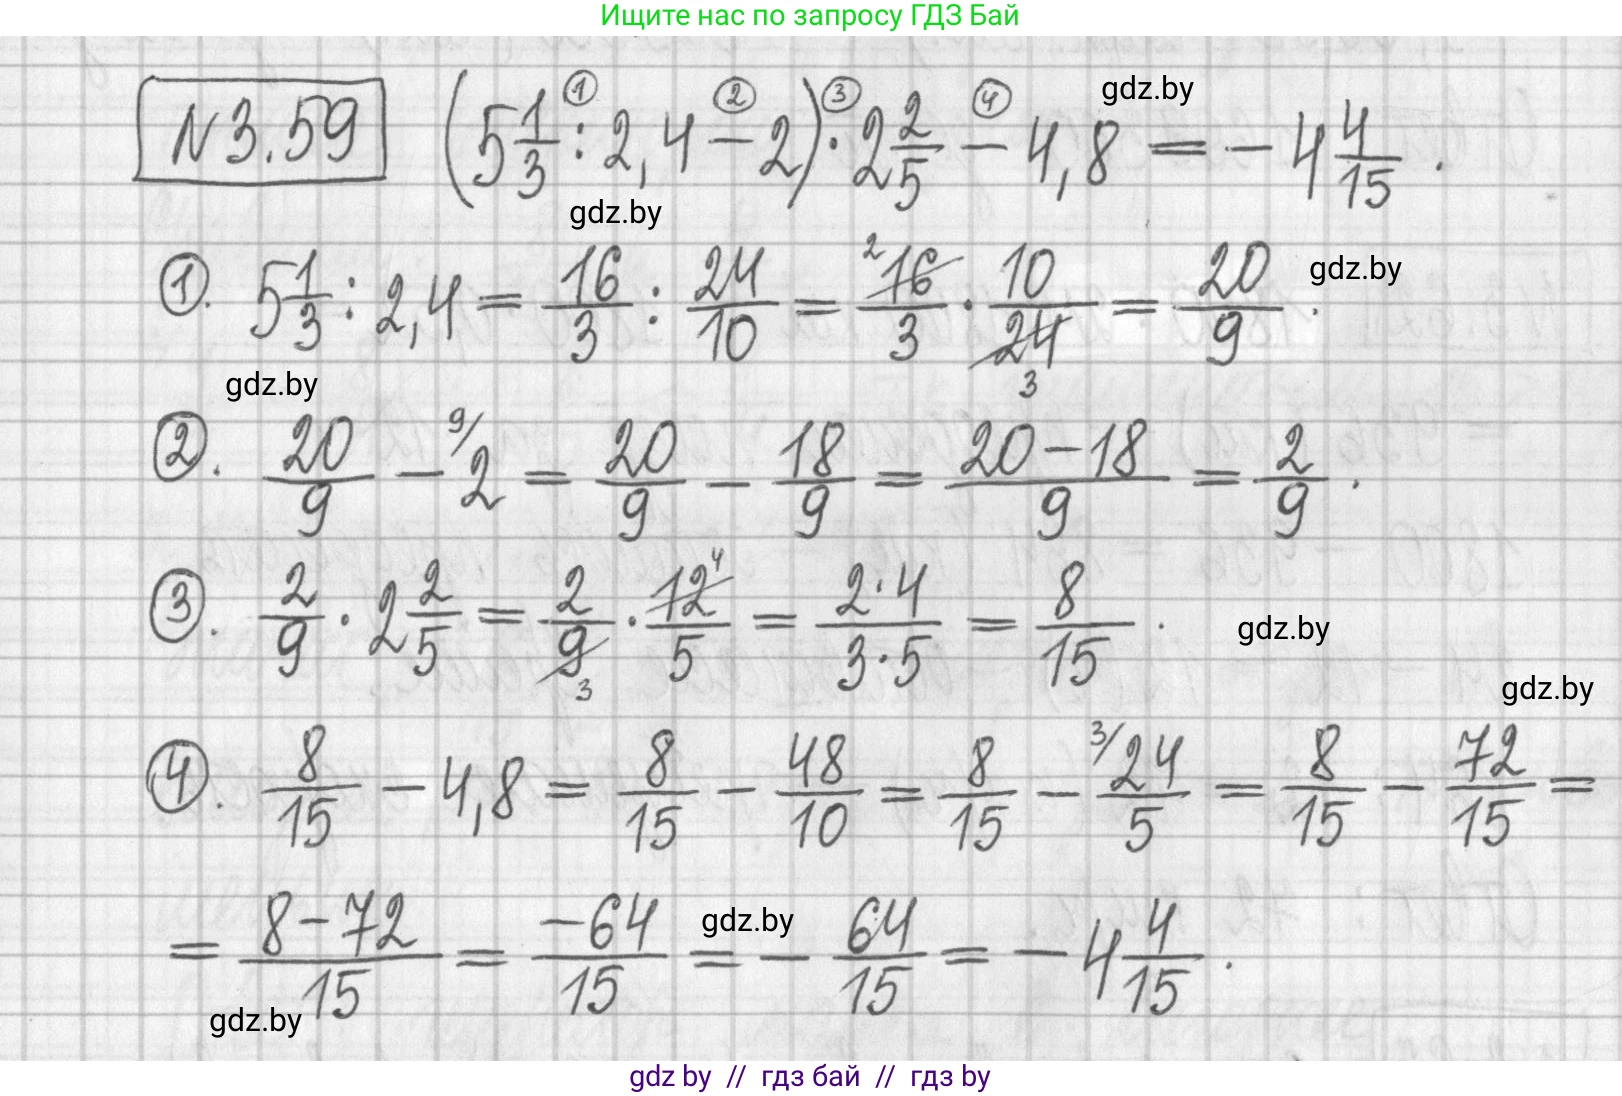 Ищите нас по запросу ГДЗ Бай
N3.59 (5 1/3 : 2,4 - 2) · 2 2/5 - 4,8 = - 4 4/15 .
① ② ③ ④
gdz.by
gdz.by
①. 5 1/3 : 2,4 = 16/3 : 24/10 = 16/3 · 10/24 = 20/9 .
2 3
gdz.by
gdz.by
②. 20/9 - 9/ 2 = 20/9 - 18/9 = 20-18/9 = 2/9 .
③. 2/9 · 2 2/5 = 2/9 · 12/5 = 2·4/3·5 = 8/15 .
4 3
gdz.by
gdz.by
④. 8/15 - 4,8 = 8/15 - 48/10 = 8/15 - 3/ 24/5 = 8/15 - 72/15 =
= 8-72/15 = -64/15 = - 64/15 = - 4 4/15 .
gdz.by
gdz.by
gdz by // гдз бай // гдз by